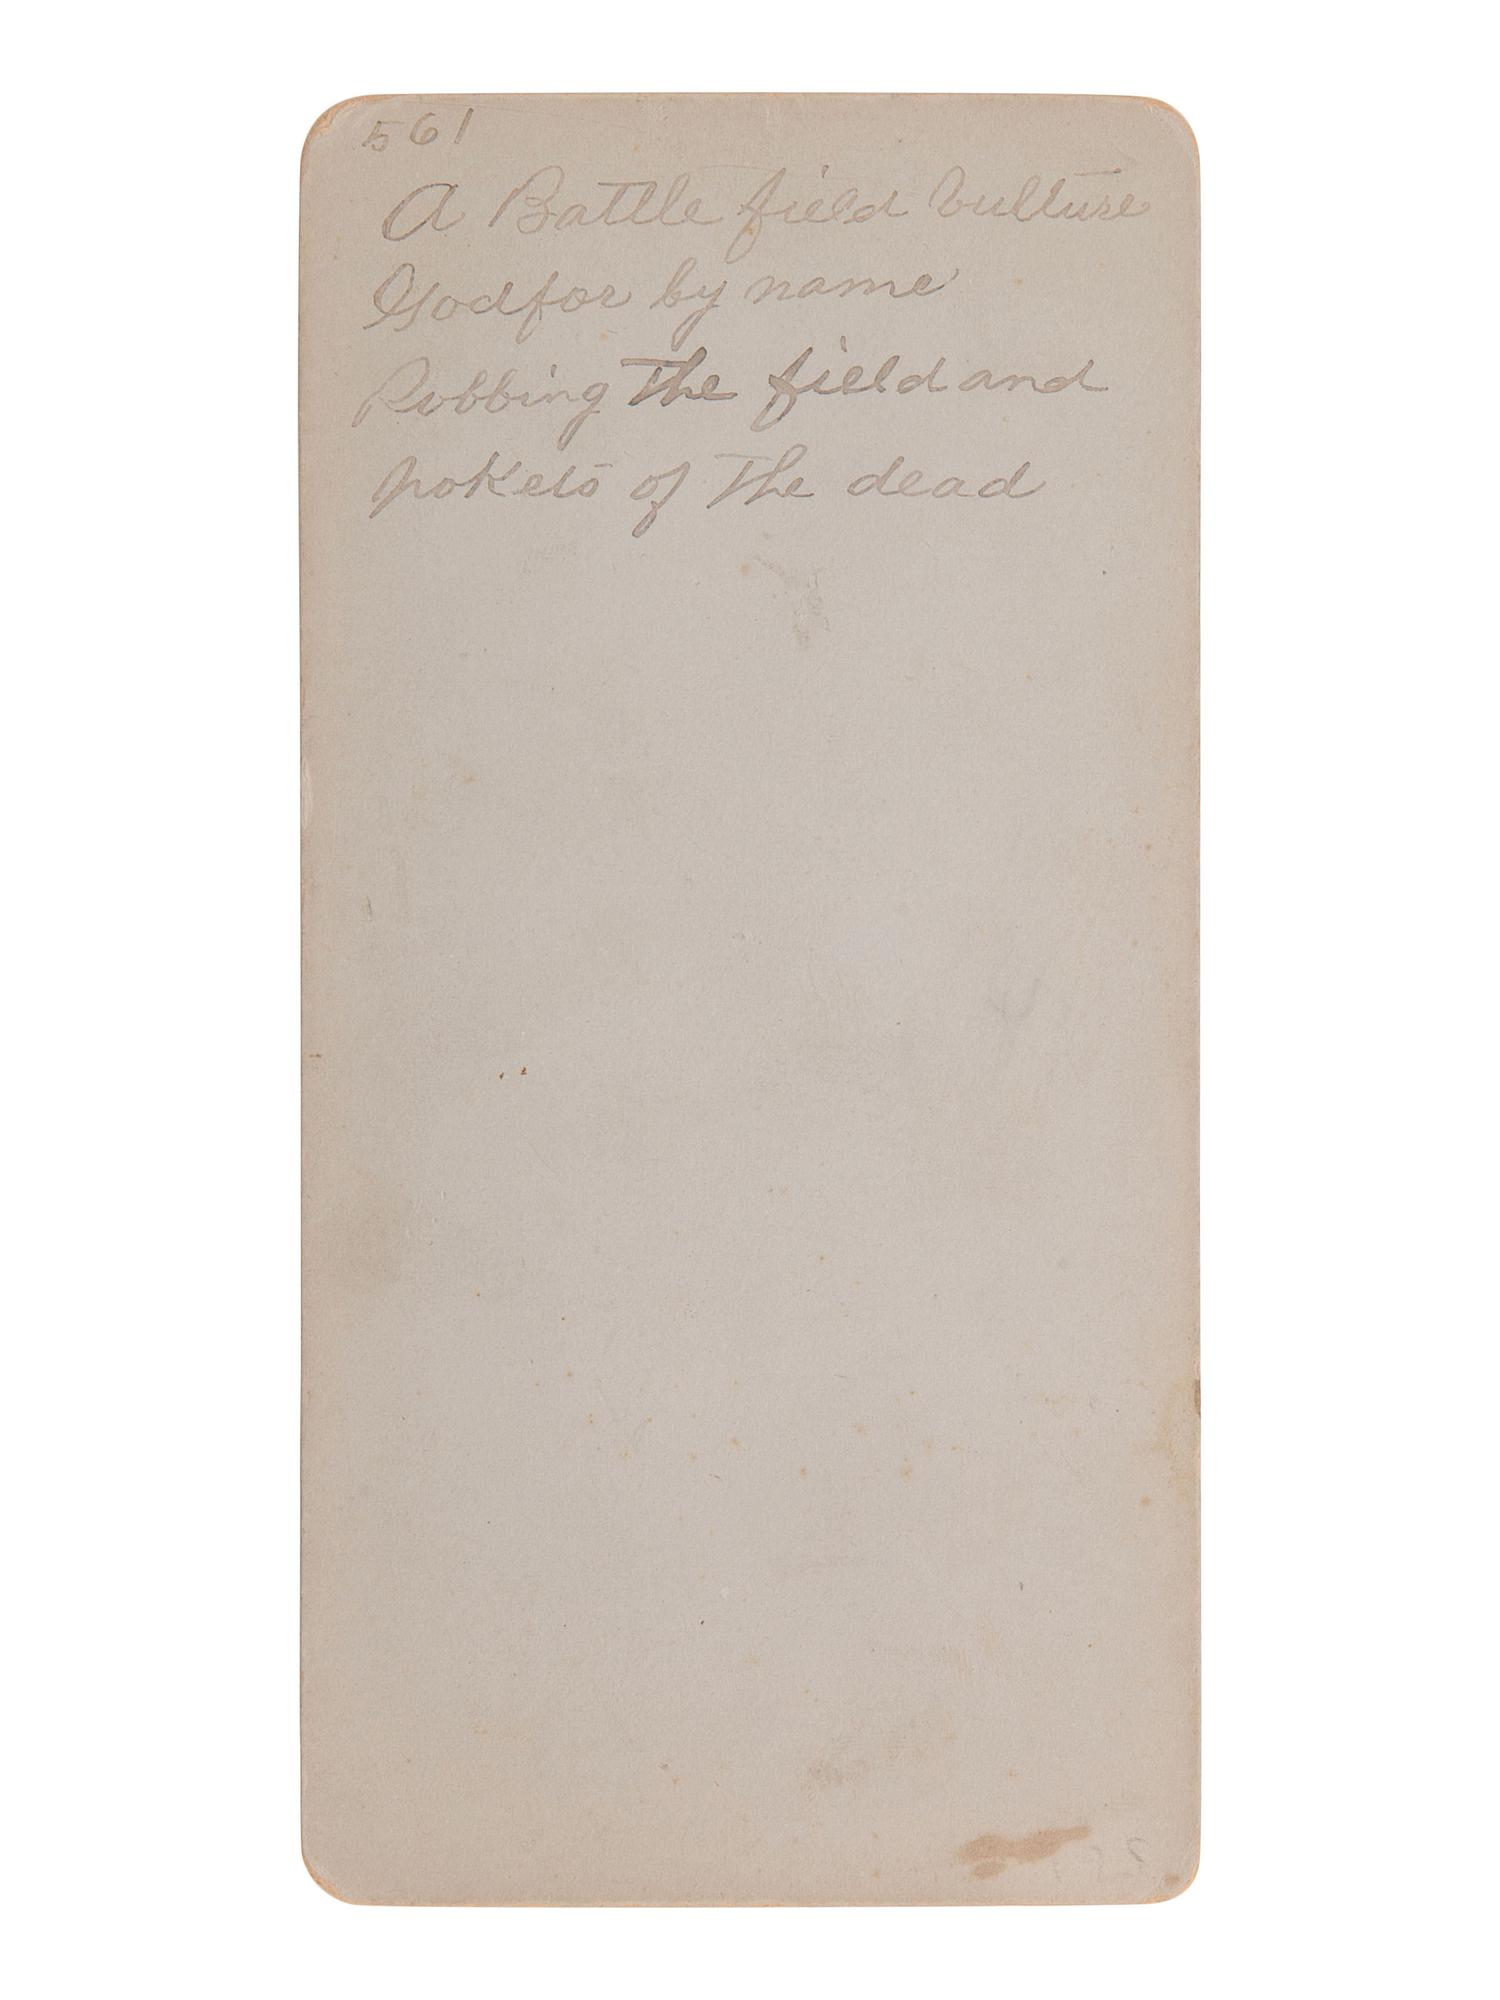 561
A Battle field Vulture
Godfor by name
Robbing The field and
pokets of The dead